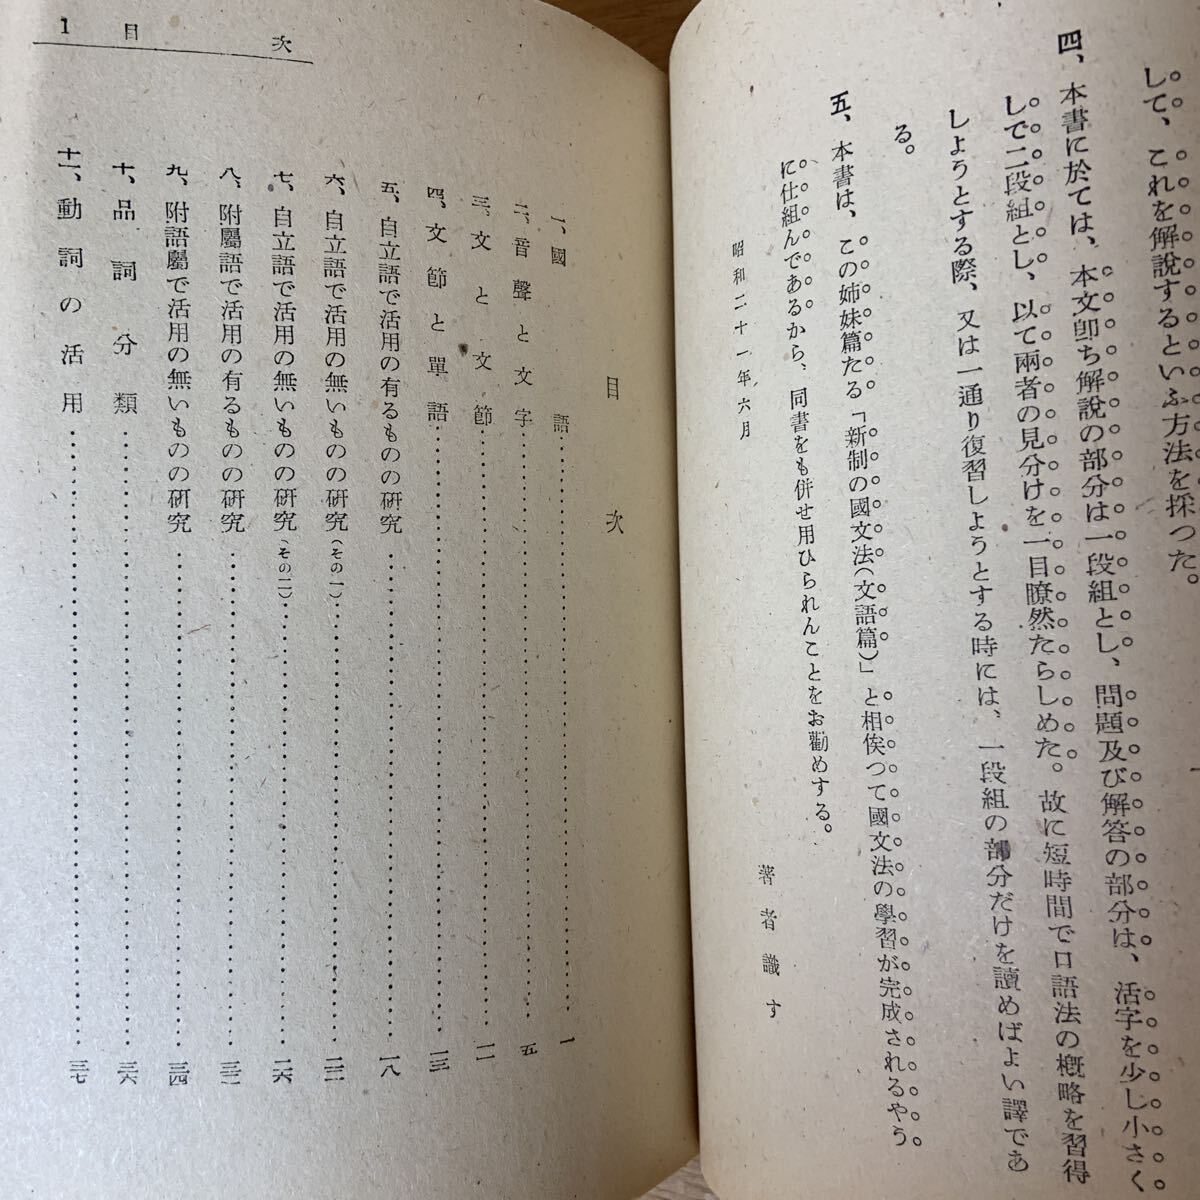 して、これを解説するといふ方法を採つた。
四、本書に於ては、本文卽ち解説の部分は一段組とし、問題及び解答の部分は、活字を少し小さく
して二段組とし、以て兩者の見分けを一目瞭然たらしめた。故に短時間で口語法の槪略を習得
しようとする際、又は一通り復習しようとする時には、一段組の部分だけを讀めばよい譯であ
る。
五、本書は、この姉妹篇たる「新制の國文法(文語篇)」と相俟つて國文法の學習が完成されるやう
に仕組んであるから、同書をも併せ用ひられんことをお勸めする。
昭和二十一年六月
著者識す
1 目次
目次
一、國語 一
二、音聲と文字 五
三、文と文節 一一
四、文節と單語 一三
五、自立語で活用の有るものの硏究 一八
六、自立語で活用の無いものの硏究(その一) 二二
七、自立語で活用の無いものの硏究(その二) 二六
八、附屬語で活用の有るものの硏究 三二
九、附語屬で活用の無いものの硏究 三四
十、品詞分類 三六
十一、動詞の活用 三七